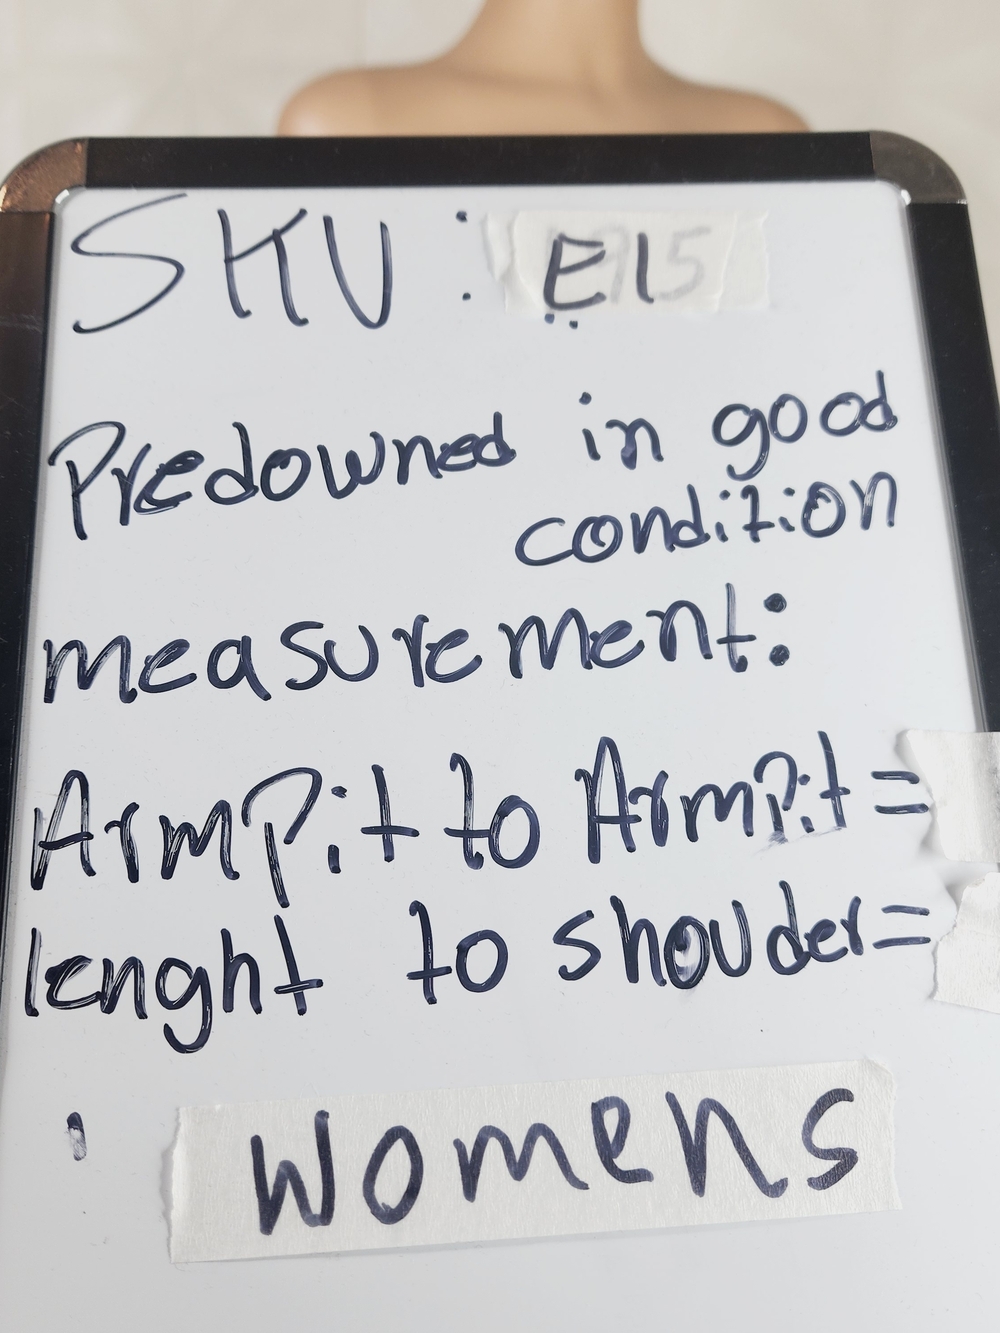 SKU : E1
Predowned in good
condition
measurement:
Armpit to Armpit =
lenght to shouder =
Womens